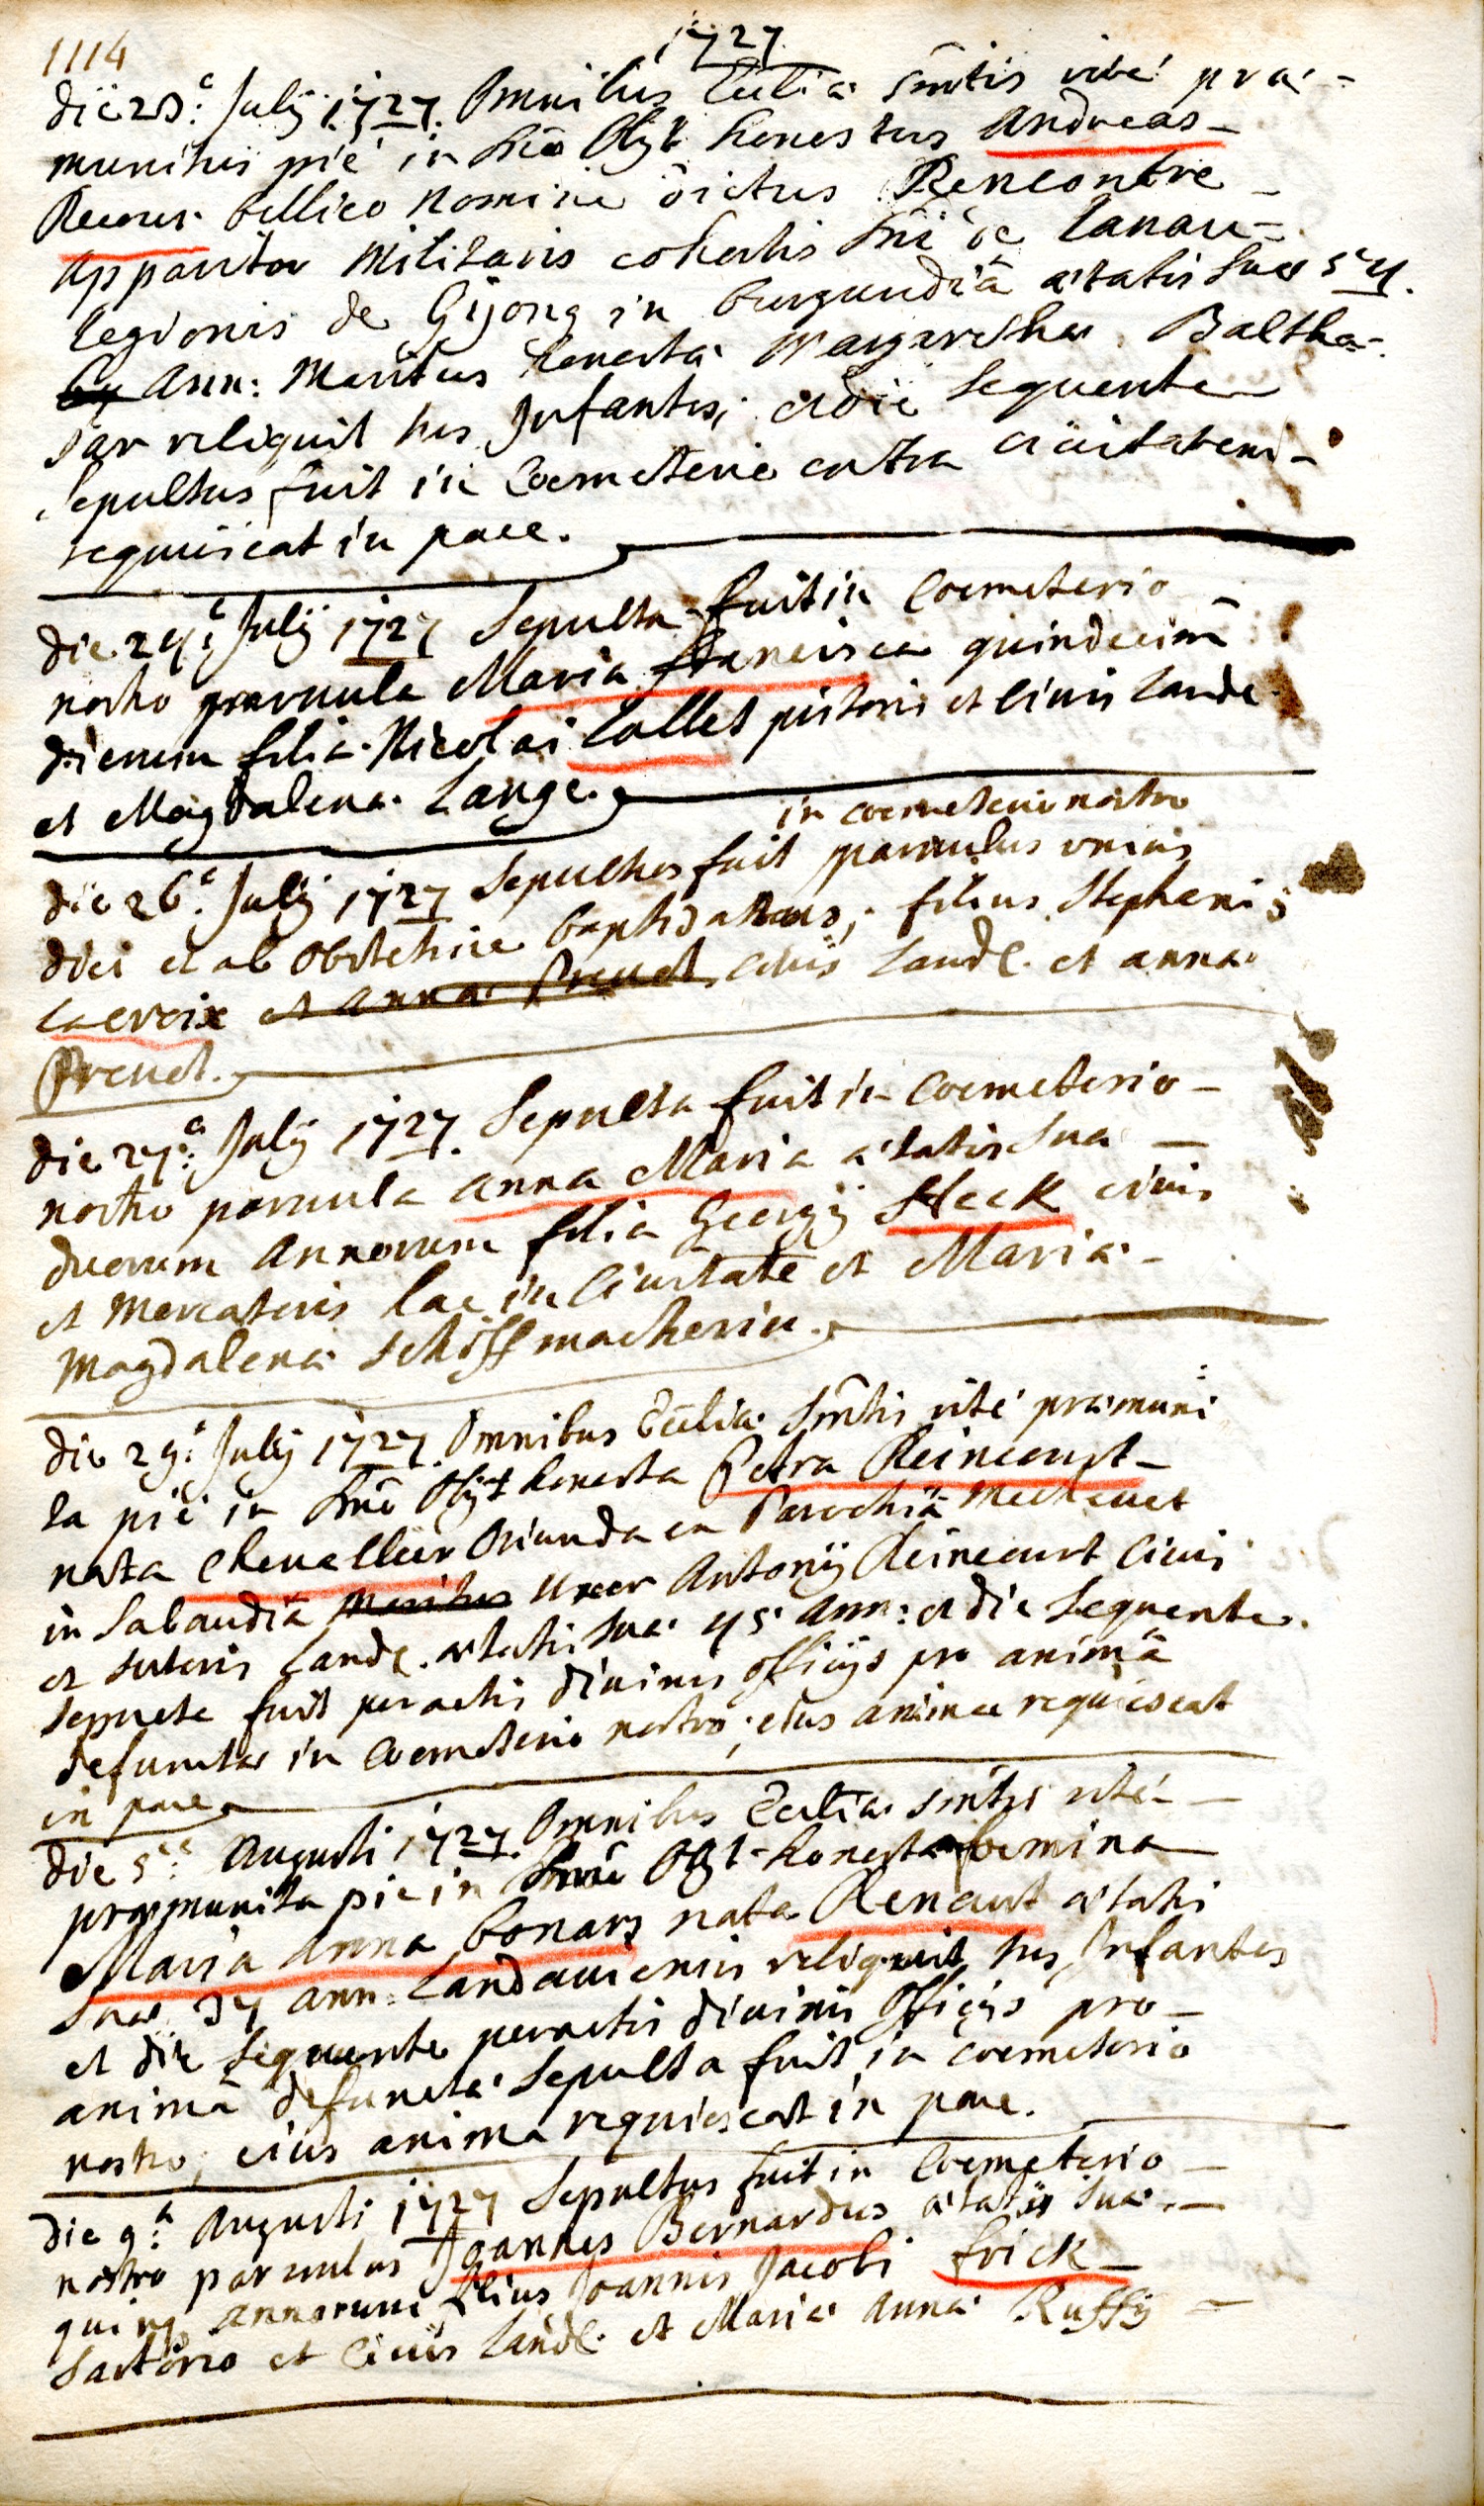 1114
1727
die 23.a Julÿ 1727. Omnibus Eccliæ Smtis rite præ-
munitus pie in Dno Obÿt honestus Andreas
bellico nomine dictus Rencontre
apparitor Militaris cohortis Dni de Lanau
legionis de Gijong in burgundia ætatis suæ 54.
Ann: Maritus honestæ Margarethæ Baltha-
sar reliquit tres Infantes, et die sequente
sepultus fuit in Coemeterio extra civitatem
requiescat in pace.
die 24.a Julÿ 1727 Sepulta fuit in Coemeterio
nostro parvula Maria francisca quindecim
dierum filia Nicolai Collet pistoris et civis Lande
et Magdalenæ Lange.
in coemeterio nostro
die 26.a Julÿ 1727 Sepultus fuit parvulus unius
diei et ab obstetrice baptisatus, filius Stephani
Lacroix et Anna Preuct civis Landl. et annæ
Preuct.
die 27.a Julÿ 1727. Sepulta fuit in Coemeterio
nostro parvula anna Maria ætatis suæ
duorum annorum filia Georgÿ Steck civis
et Mercatoris hac in Civitate et Mariæ
Magdalenæ Schiffmacherin.
die 29.a Julÿ 1727. Omnibus Eccliæ Smtis rite præmuni
ta pie in Dno Obÿt honesta Petra Reincourt
nata Chevallier Oriunda ex Parochiâ
in Sabaudiâ Maritus Uxor Antonÿ Reincourt Civis
et sutoris Landl. ætatis suæ 45 ann: et die sequente
sepulta fuit peractis divinis officÿs pro animâ
defunctæ in Coemeterio nostro, eius anima requiescat
in pace
die 5.a Augusti 1727. Omnibus Eccliæ smtis rite
præmunita pie in Dno Obÿt honesta foemina
Maria Anna Bonars nata Renaut ætatis
suæ 37 ann: Landaviensis reliquit tres Infantes
et die sequente peractis divinis officÿs pro
animâ defunctæ sepulta fuit in coemeterio
nostro, eius anima requiescat in pace.
die 9.a Augusti 1727 Sepultus fuit in Coemeterio
nostro parvulus Joannes Bernardus ætatis suæ
quinq annorum filius Joannis Jacobi frick
Sartoris et Civis Landl. et Mariæ Annæ Ruffÿ